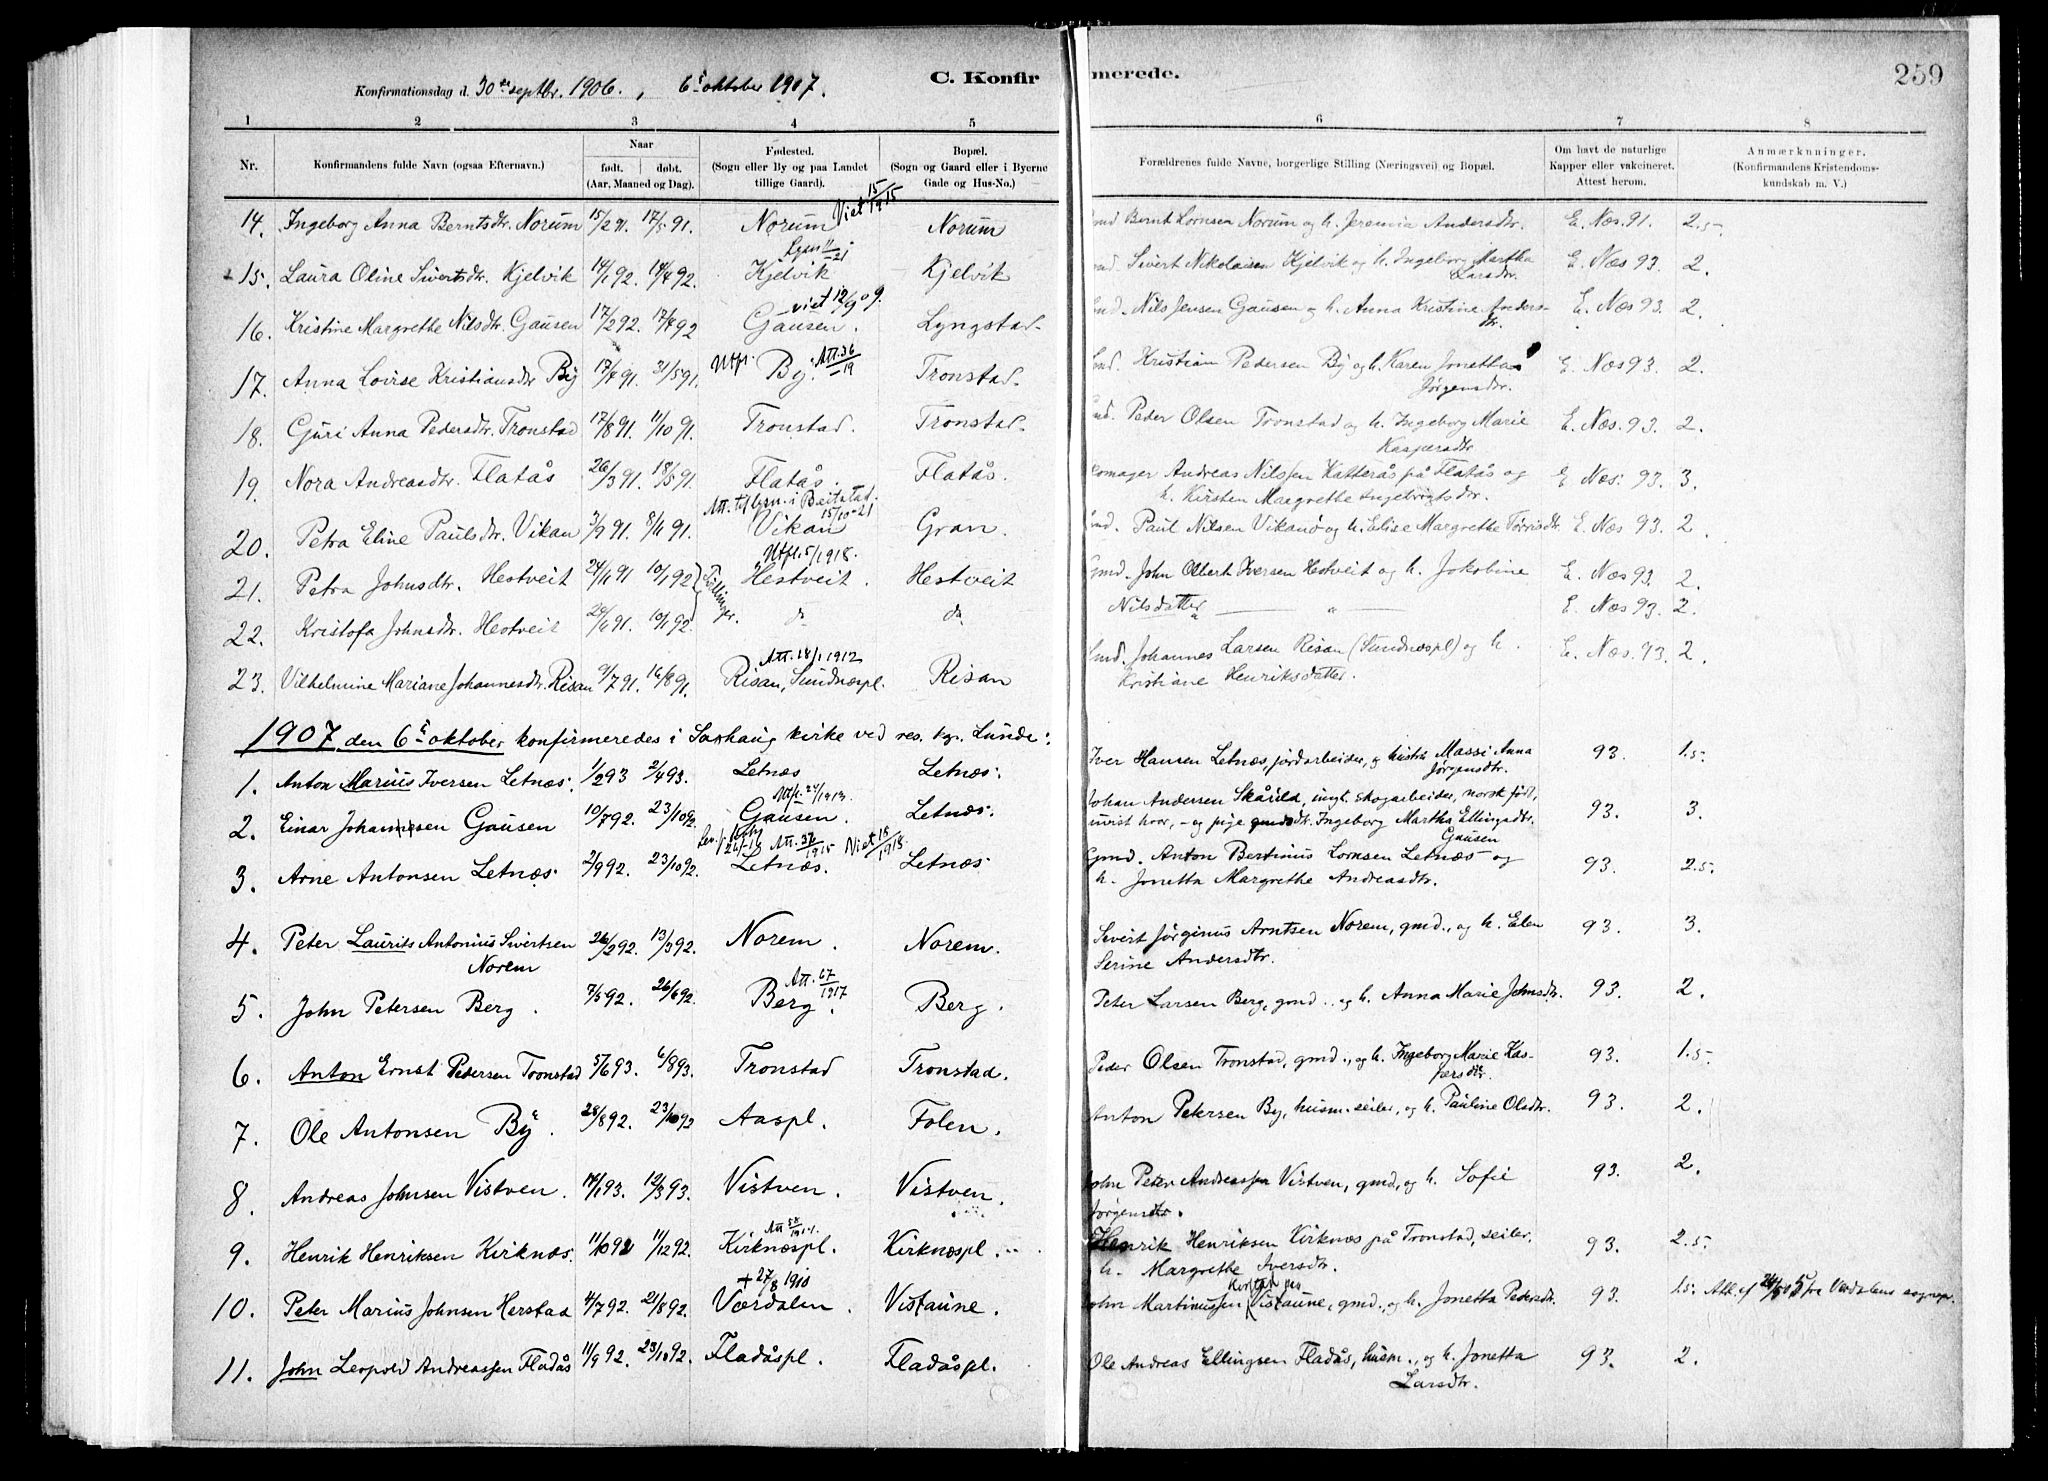 259
C. Konfirmerede.
Konfirmationsdag d. 30te septbr. 1906. , 6te oktober 1907.
1 2 3 4 5 6 7 8
Nr. Konfirmandens fulde Navn (ogsaa Efternavn.) Naar født. døbt. (Aar, Maaned og Dag). Fødested. (Sogn eller By og paa Landet tillige Gaard). Bopæl. (Sogn og Gaard eller i Byerne Gade og Hus-No.) Forældrenes fulde Navne, borgerlige Stilling (Næringsvei) og Bopæl. Om havt de naturlige Kapper eller vakcineret. Attest herom. Anmærkninger. (Konfirmandens Kristendomskundskab m. V.)
Viet 15/1915
14. Ingeborg Anna Berntsdtr. Norum 15/2 91. 17/5 91. Norum Norum Gmd Bernt Lornsen Norum og h. Jeremia Andersdtr. E. Næs. 91. 2.5
15. Laura Oline Sivertsdtr. Kjelvik 14/1 92. 18/4 92. Kjelvik Kjelvik Gmd. Sivert Nikolaisen Kjelvik og h. Ingeborg Martha Larsdtr. E. Næs 93. 2.
viet 12/9 09.
16. Kristine Margrethe Nilsdtr. Gausen 17/2 92. 17/4 92 Gausen. Lyngstad. Gmd. Nils Jensen Gausen og h. Anna Kristine Andersdtr. E. Næs 93. 2.
Utfl. Att. 36/-19
17. Anna Lovise Kristiansdtr By 17/4 91. 31/5 91. By. Tronstad. Gmd. Kristian Pedersen By og h. Karen Jonetta Jørgensdtr. E. Næs 93. 2.
18. Guri Anna Pedersdtr. Tronstad 17/8 91. 11/10 91. Tronstad. Tronstad. Gmd. Peder Olsen Tronstad og h. Ingeborg Marie Kaspersdtr E. Næs. 93. 2.
19. Nora Andreasdtr. Flatås 26/3 91. 18/5 91. Flatås. Flatås. Skomager Andreas Nilssen Katterås på Flatås og h. Kirsten Margrethe Ingebrigtsdtr. E Næs. 93. 3.
Att. til lysn. i Beitstad. 15/10-21
20. Petra Eline Paulsdtr. Vikan 3/9 91. 8/11 91. Vikan Gran. Gmd. Paul Nilsen Vikan og h. Elise Margrethe Torrisdtr. E. Næs 93. 2
Utfl. 5/1918.
21. Petra Johnsdtr. Hestveit 24/11 91 10/1 92 Tvillinger. Hestveit. Hestveit Gmd. John Olbert Iversen Hestveit og h. Jakobine Nilsdatter E. Næs 93. 2.
22. Kristofa Johnsdtr. Hestveit 24/11 91. 10/1 92. do do " E. Næs 93. 2.
Att. 18/1 1912
23. Vilhelmine Mariane Johannesdtr. Risan 9/7 91. 16/8 91. Risan, Sundnæspl. Risan Gmd. Johannes Larsen Risan (Sundnæspl) og h. Kristiane Henriksdatter. E. Næs. 93. 2.
1907 den 6te oktober konfirmeredes i Saxhaug kirke ved res. kap. Lunde:
1. Anton Marius Iversen Letnæs. 1/2 93 2/4 93. Letnæs Letnæs. Iver Hansen Letnæs, jordarbeider, og hustru Massi Anna Jørgensdtr. 93. 1.5
2. Einar Johannesen Gausen 10/7 92. 23/10 92. Gausen. Letnæs. Johan Andersen Skårild, ungk. skogarbeider, norsk født, uvist hvor, - og pige gmdsdtr. Ingeborg Martha Ellingsdtr. Gausen 93. 3.
Att. 37/1915 Viet 18/1918.
3. Arne Antonsen Letnæs. 2/9 92. 23/10 92. Letnæs. Letnæs. Gmd. Anton Bertinus Lornsen Letnæs og h. Jonetta Margrethe Andreasdtr. 93. 2.5.
4. Peter Laurits Antonius Sivertsen Norem 26/2 92. 13/3 92. Norem. Norem. Sivert Jørginus Arntsen Norem, gmd., og h. Elen Serine Andersdtr. 93. 3.
Att. 67/1917
5. John Petersen Berg. 7/5 92. 26/6 92. Berg. Berg. Peter Larsen Berg, gmd., og h. Anna Marie Johnsdtr. 93. 2.
6. Anton Ernst Pedersen Tronstad 5/6 93. 6/8 93. Tronstad Tronstad. Peder Olsen Tronstad, gmd., og h. Ingeborg Marie Kaspersdtr. 93. 1.5
7. Ole Antonsen By. 28/8 92. 23/10 92 Aaspl. Folen. Anton Petersen By, husm. seiler, og h. Pauline Olsdtr. 93. 2.
8. Andreas Johnsen Vistven. 14/1 93. 12/3 93. Vistven. Vistven. John Peter Andreassen Vistven, gmd, og h. Sofie Jørgensdtr. 93. 2.
9. Henrik Henriksen Kirknæs. 11/10 92 11/12 92. Kirknæspl. Kirknæspl. Henrik Henriksen Kirknæs på Tronstad, seiler, h. Margrethe Iversdtr. 93. 2.5
+ 27/8 1910
10. Peter Marius Johnsen Herstad 4/7 92. 21/8 92. Værdalen. Vistaune. John Martinussen Vistaune, gmd., og h. Jonetta Pedersdtr. 93. 1.5. Att. af 24/5 05 fra Værdalens sognepr.
11. John Leopold Andreassen Fladås 11/9 92. 23/10 92. Fladåspl. Fladåspl. Ole Andreas Ellingsen Fladås, husm., og h. Jonetta Larsdtr. 93. 2.